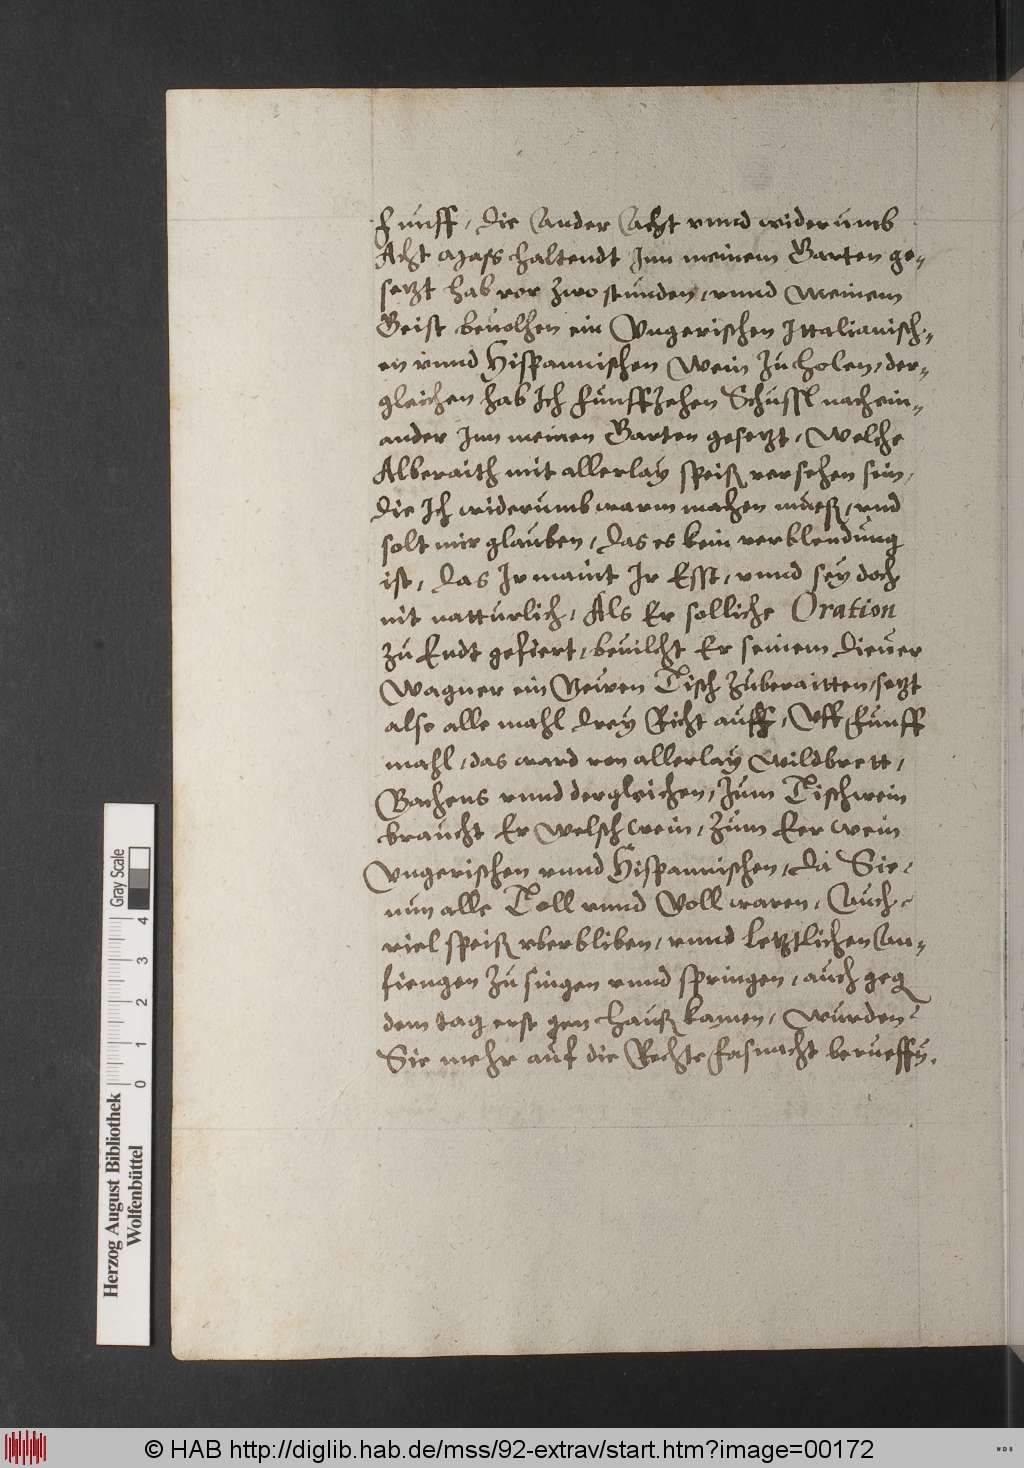 funff, die Ander Acht vnnd widerumb
Acht Mass haltendt Inn meinem Garten ge-
setzt hab vor zwo stunden, vnnd meinem
Geist beuolhen ein Vngerischen Ittalianisch-
en vnnd Hispannischen Wein zu holen, der-
gleichen hab Ich funffzehen Schussl nachein-
ander Inn meinen Garten gesetzt, Welche
Alberaith mit allerlay speiß versehen sin,
die Ich widerumb warm machen mueß, vnd
solt mir glauben, das es kein verblendung
ist, das Ir maint Ir Esst, vnnd sey doch
nit natturlich, Als Er solliche Oration
zu Endt gefiert, beuilcht Er seinem diener
Wagner ein Newen Tisch zuberaitten, setzt
also alle mahl drey Richt auff, Vff funff
mahl, das ward von allerlay Wildbrett,
Bachens vnnd dergleichen, Zum Tischwein
braucht Er welsch wein, Zum Eer wein
Vngerischen vnnd Hispannischen, da Sie
nun alle Toll vnnd Voll waren, Auch
viel speiß vberbliben, vnnd letztlichen An-
fiengen zu singen vnnd springen, auch geg
dem tag erst gen hauß kamen, wurden
Sie mehr auf die Rechte fasnacht berueffn.
Gray Scale
0 1 2 3 4
Herzog August Bibliothek
Wolfenbüttel
© HAB http://diglib.hab.de/mss/92-extrav/start.htm?image=00172